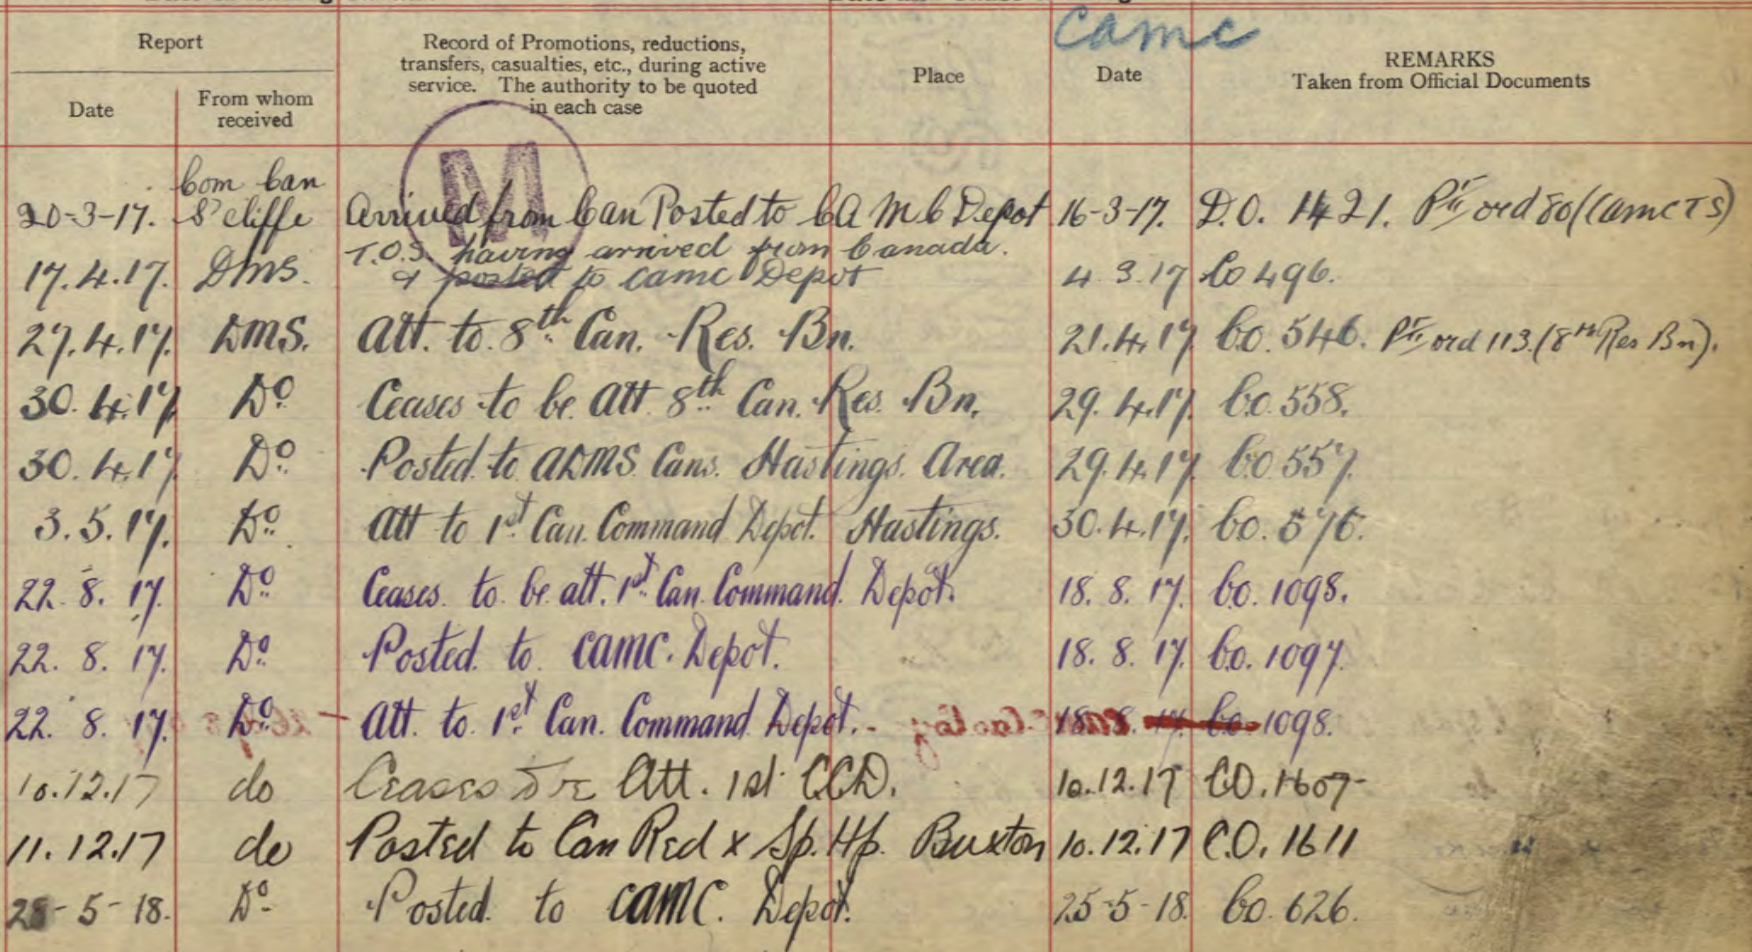 camc
Report
Date
From whom received
Record of Promotions, reductions, transfers, casualties, etc., during active service. The authority to be quoted in each case
Place
Date
REMARKS
Taken from Official Documents
M
20-3-17. Com Can S'cliffe Arrived from Can Posted to C A M C Depot 16-3-17. D.O. 1421. Pt II ord 80 (CAMC TS)
17.4.17. DMS. T.O.S. having arrived from Canada. & posted to CAMC Depot 4.3.17 Co 496.
27.4.17. DMS. Att. to 8th Can. Res. Bn. 21.4.17 Co. 546. Pt II ord 113. (8th Res Bn).
30.4.17 Do Ceases to be att 8th Can. Res. Bn. 29.4.17. Co. 558.
30.4.17 Do Posted to ADMS. Cans. Hastings Area. 29.4.17. Co 557.
3.5.17. Do. Att to 1st Can. Command Depot. Hastings. 30.4.17. Co. 576.
22.8.17. Do Ceases to be att. 1st Can. Command Depot. 18.8.17. Co. 1098.
22.8.17. Do Posted to CAMC. Depot. 18.8.17. Co. 1097.
22.8.17. Do Att. to 1st Can. Command Depot. 18.8.17. Co. 1098.
10.12.17 do Ceases to be Att. 1st CCD. 10.12.17 CO. 1607-
11.12.17 do Posted to Can Red x Sp. Hp. Buxton 10.12.17 C.O. 1611
28-5-18. Do Posted to CAMC. Depot. 25-5-18. Co. 626.